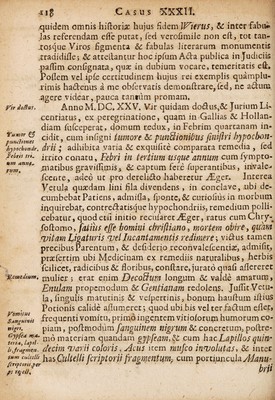 218 CASUS XXXII.
quidem omnis historiæ hujus fidem Wierus, & inter fabu-
las referendam esse putat, sed verosimile non est, tot tan-
tosque Viros figmenta & fabulas literarum monumentis
tradidisse; & atteritantur hoc ipsum Acta publica in Judiciis
passim consignata, quæ in dubium vocare, temeritatis est.
Possem vel ipse certitudinem hujus rei exemplis quamplu-
rimis hactenus à me observatis demonstrare, sed, ne actum
agere videar, pauca tantum promam.
Vir doctus.
Anno M. DC. XXV. Vir quidam doctus, & Jurium Li-
centiatus, ex peregrinatione, quam in Gallias & Hollan-
diam susceperat, domum redux, in Febrim quartanam in-
Tumor &
punctiones
hypochondr.
Febris ter-
tium an-
num.
cidit, cum insigni tumore & punctionibus sinistri hypochon-
drii; adhibita varia & exquisita comparata remedia, sed
irrito conatu, Febri in tertium usque annum cum sympto-
matibus gravissimis, & captum ferè superantibus, invale-
scente, adeò ut pro derelicto haberetur Æger. Interea
Vetula quædam lini fila divendens, in conclave, ubi de-
cumbebat Patiens, admissa, sponte, & curiosius in morbum
inquirebat, contrectatisque hypochondriis, remedium polli-
cebatur, quod etsi initio recusaret Æger, ratus cum Chry-
sostomo, satius esse homini christiano, mortem obire, quam
vitam Ligaturis vel Incantamentis redimere; victus tamen
precibus Parentum, & desiderio reconvalescentiæ, admisit,
præsertim ubi Medicinam ex remediis naturalibus, herbis
scilicet, radicibus & floribus, constare, jurato quasi assereret
Remedium.
mulier; erat enim Decoctum longum & valdè amarum,
Enulam propemodum & Gentianam redolens. Jussit Vetu-
la, singulis matutinis & vespertinis, bonum haustum istius
Potionis calidè assumeret; quod ubi bis vel ter factum esset,
Vomitus
Sanguinis
nigri,
frequenti vomitu, primò ingentem vitiosorum humorum co-
piam, postmodum sanguinem nigrum & concretum, postre-
mò materiam quandam gypseam, & cum hac Lapillos quin-
decim varii coloris. Acus item musco involutas, & inter
has Cultelli scriptorii fragmentum, cum portiuncula Manu-
brii